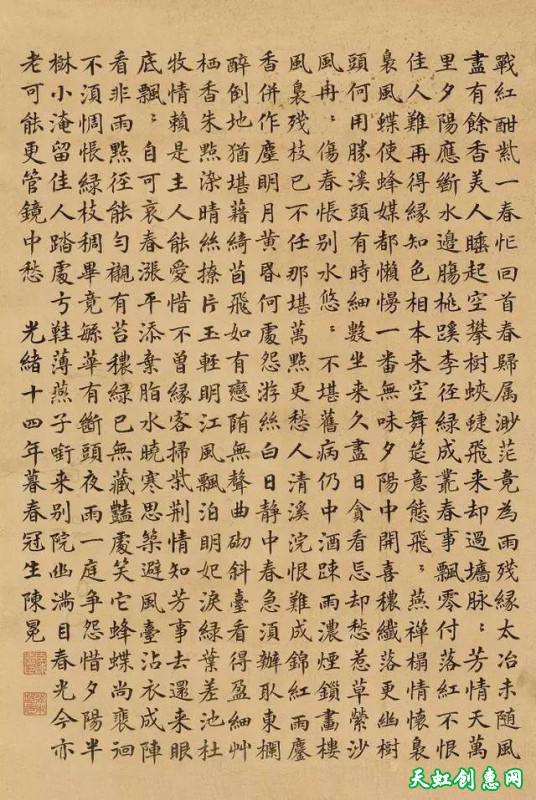 戰紅酣紫一春忙回首春歸属渺茫竟為雨殘緣太冶未随風
盡有餘香美人睡起空攀樹蛺蜨飛来却過墻脉〻芳情天萬
里夕陽應斷水邊膓桃蹊李徑綠成叢春事飄零付落紅不恨
佳人難再得緣知色相本来空舞筵意態飛〻燕禅榻情懷裊
裊風蝶使蜂媒都懶慢一番無味夕陽中開喜穠纖落更幽樹
頭何用勝溪頭有時細數坐来久盡日貪看忘却愁惹草縈沙
風冉〻傷春悵别水悠〻不堪舊病仍中酒踈雨濃煙鎖畫樓
風裊殘枝已不任那堪萬點更愁人清溪浣恨難成錦紅雨鏖
香併作塵明月黄昏何處怨游絲白日静中春急須辦取東欄
醉倒地猶堪藉綺茵飛如有戀陏無聲曲砌斜臺看得盈細艸
栖香朱點染晴絲撩片玉輕明江風飄泊明妃淚綠葉差池杜
牧情賴是主人能愛惜不曾緣客掃柴荆情知芳事去還来眼
底飄〻自可哀春漲平添棄脂水曉寒思築避風臺沾衣成陣
看非雨點徑能勻襯有苔穠綠已無藏豔處笑它蜂蝶尚裵徊
不須惆悵綠枝稠畢竟緐華有斷頭夜雨一庭争怨惜夕陽半
楙小淹留佳人踏處弓鞋薄燕子啣来别院幽滿目春光今亦
老可能更管鏡中愁 光緒十四年暮春冠生陳冕
天虹创惠网